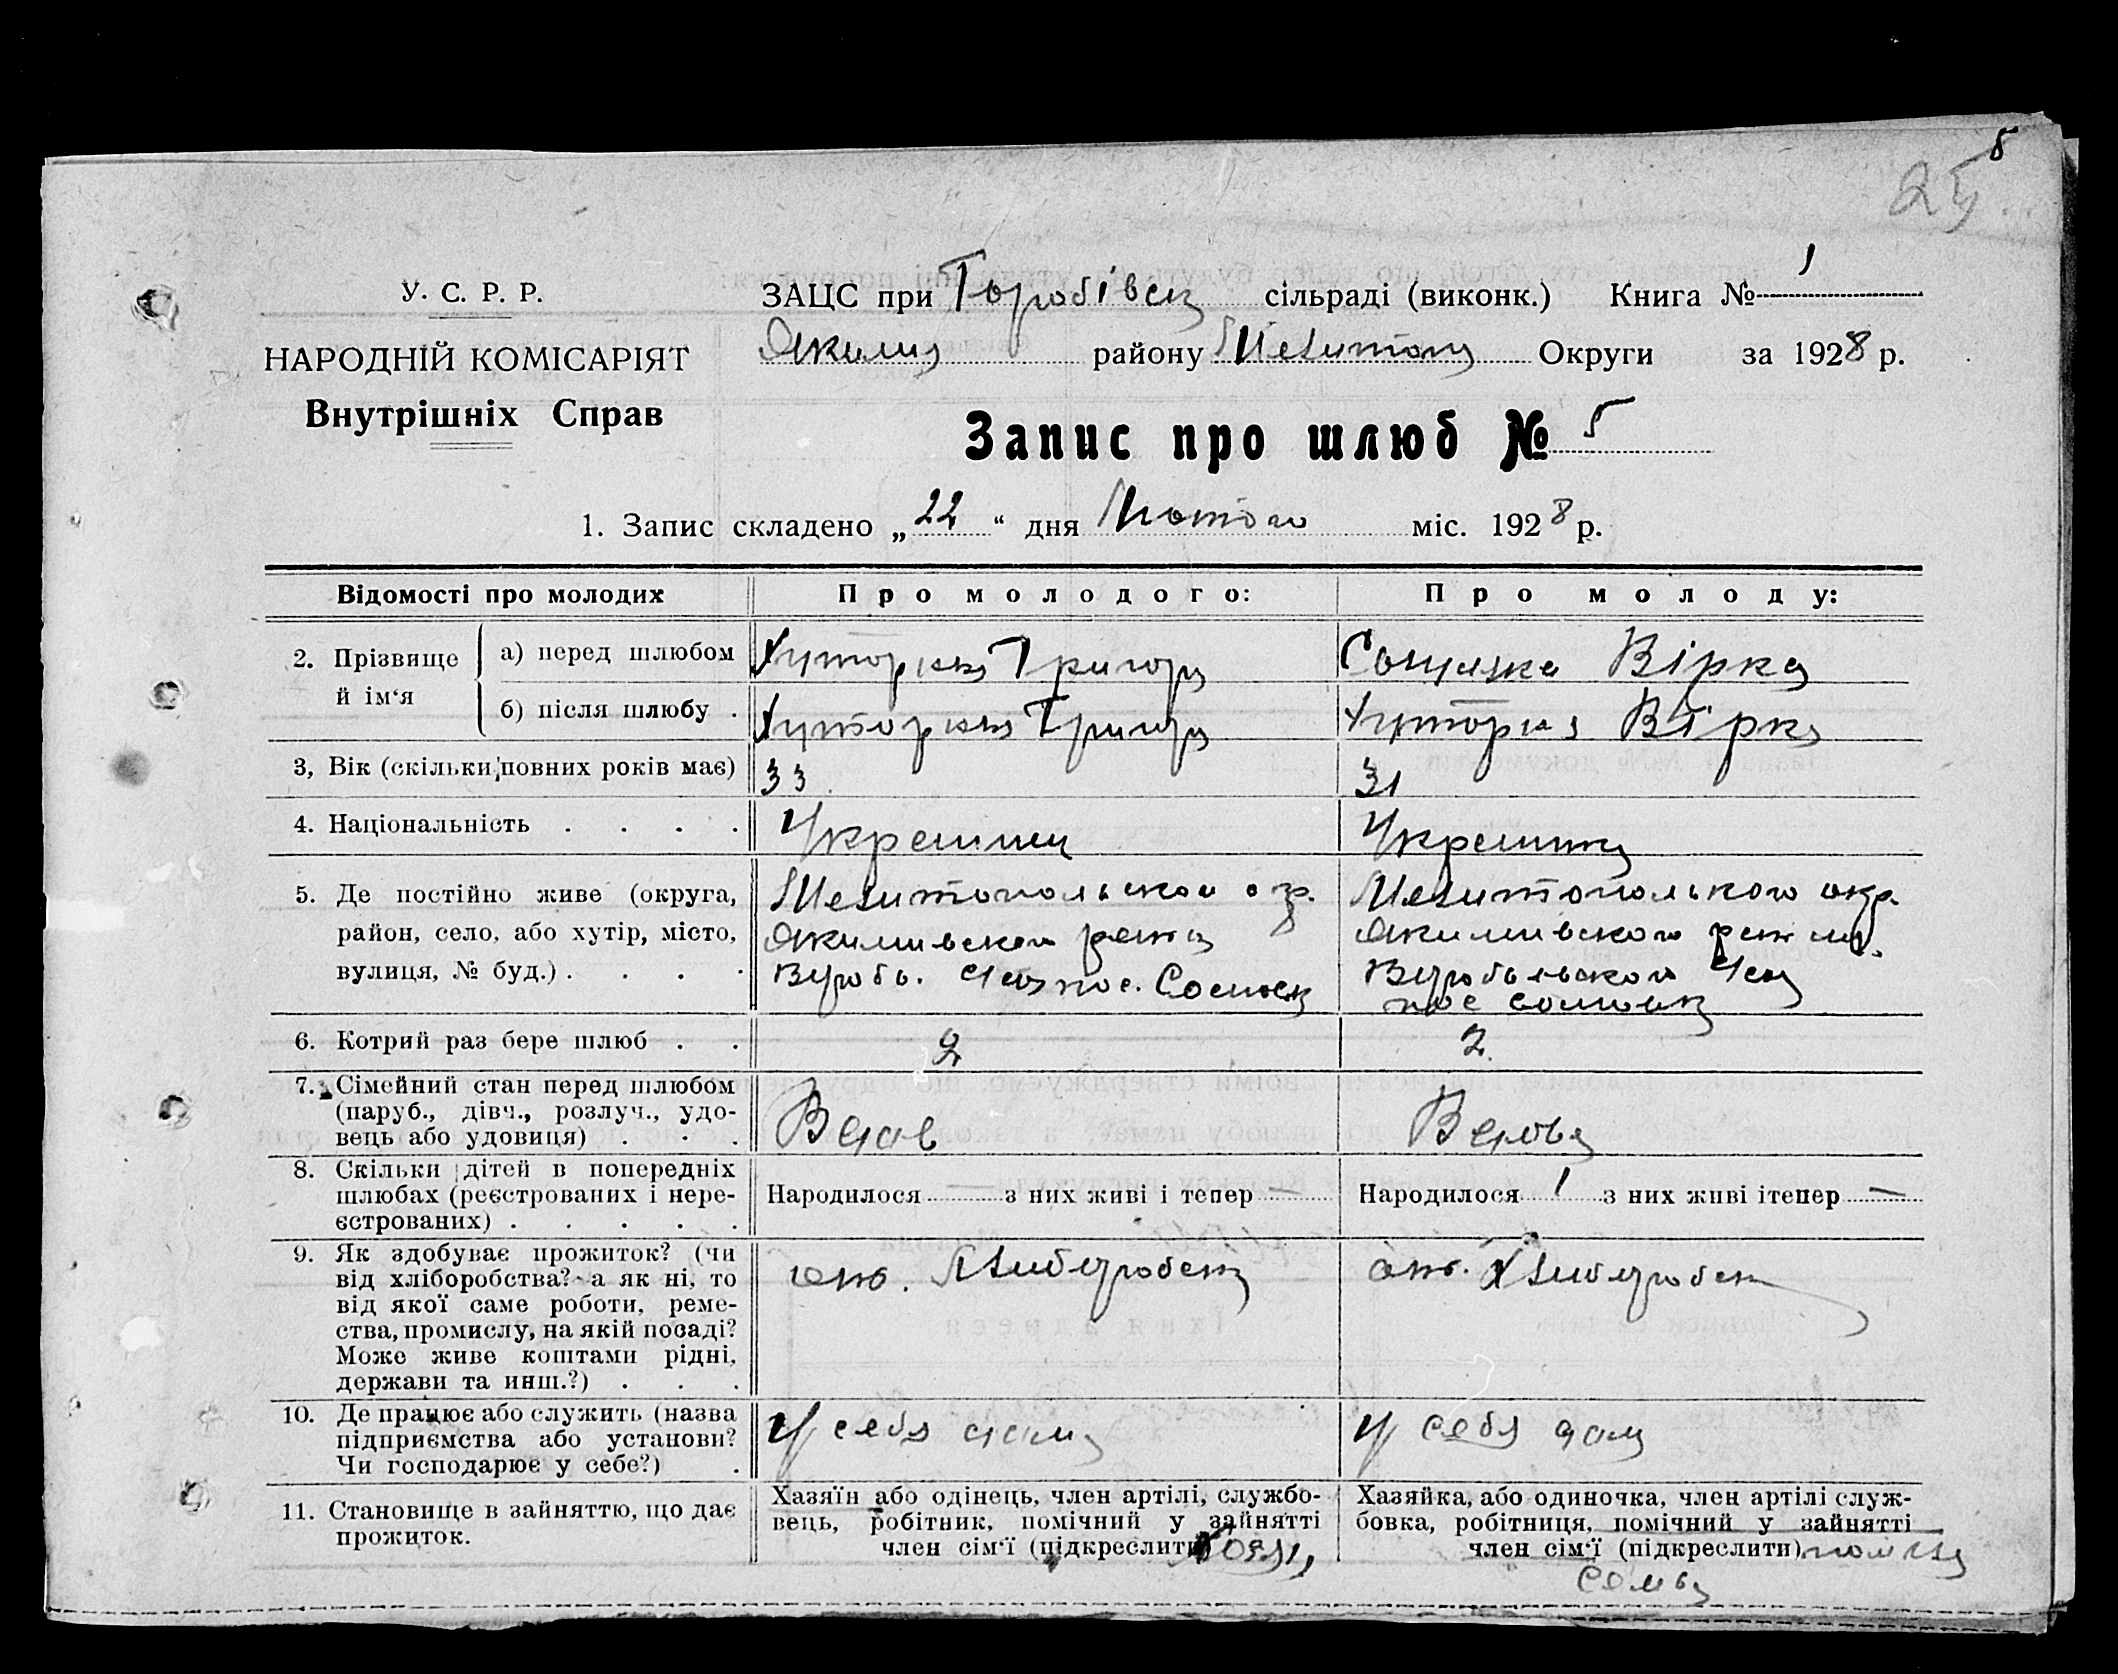 8
25
У. С. Р. Р.
НАРОДНІЙ КОМІСАРІЯТ
Внутрішніх Справ
ЗАЦС при Горобівск сільраді (виконк.) Книга № 1
Якими району Мелитоп Округи за 1928 р.
Запис про шлюб № 5
1. Запис складено „22“ дня Лютого міс. 1928 р.
Відомості про молодих Про молодого: Про молоду:
2. Прізвище й ім'я
а) перед шлюбом Григор Вірка
б) після шлюбу . Григор Вірка
3, Вік (скільки повних років має) 33 31
4. Національність . . . . Украинец Украинка
5. Де постійно живе (округа, Мелитопольской окр. Мелитополького окр.
район, село, або хутір, місто, Якимивского Якимивского
вулиця, № буд.) . . . . пос.
6. Котрий раз бере шлюб . . 2 2.
7. Сімейний стан перед шлюбом
(паруб., дівч., розлуч., удо-
вець або удовиця) . . . Вдов Вдова
8. Скільки дітей в попередніх
шлюбах (реєстрованих і нере- Народилося з них живі і тепер — Народилося 1 з них живі ітепер —
єстрованих) . . . . .
9. Як здобуває прожиток? (чи Хлибороб Хлибороб
від хліборобства? а як ні, то
від якої саме роботи, реме-
ства, промислу, на якій посаді?
Може живе коштами рідні,
держави та инш.?) . . .
10. Де працює або служить (назва У себя дома У себя дома
підприємства або установи?
Чи господарює у себе?) .
11. Становище в зайняттю, що дає
прожиток.
Хазяїн або одінець, член артілі, службо-
вець, робітник, помічний у зайнятті
член сім'ї (підкреслити)
Хазяйка, або одиночка, член артілі служ-
бовка, робітниця, помічний у зайнятті
член сім'ї (підкреслити)